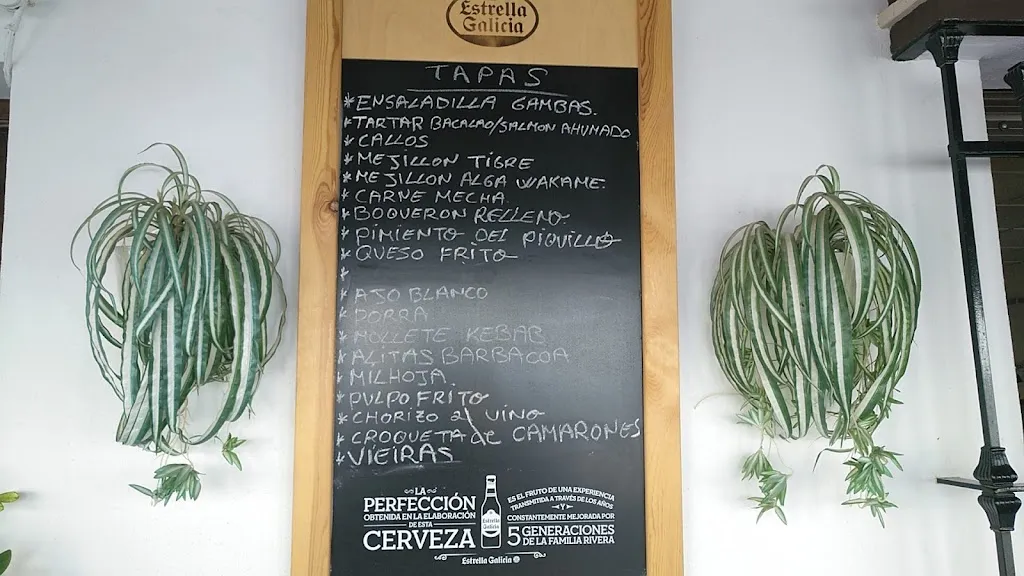 Estrella
Galicia
TAPAS
* ENSALADILLA GAMBAS.
* TARTAR BACALAO/SALMON AHUMADO
* CALLOS
* MEJILLON TIGRE
* MEJILLON ALGA WAKAME.
* CARNE MECHA
* BOQUERON RELLENO
* PIMIENTO DEL PIQUILLO
* QUESO FRITO
*
* AJO BLANCO
* PORRA
* MOLLETE KEBAB
* ALITAS BARBACOA
* MILHOJA.
* PULPO FRITO
* CHORIZO al VINO
* CROQUETA de CAMARONES
* VIEIRAS
LA
PERFECCIÓN
OBTENIDA EN LA ELABORACIÓN
DE ESTA
CERVEZA
Estrella
Galicia
ES EL FRUTO DE UNA EXPERIENCIA
TRANSMITIDA A TRAVÉS DE LOS AÑOS
Y
CONSTANTEMENTE MEJORADA POR
5 GENERACIONES
DE LA FAMILIA RIVERA
Estrella Galicia